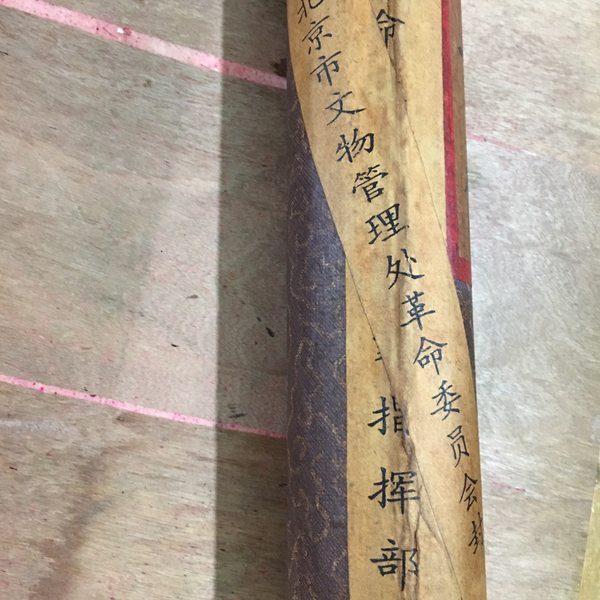 命
北京市文物管理处革命委员会封
指挥部